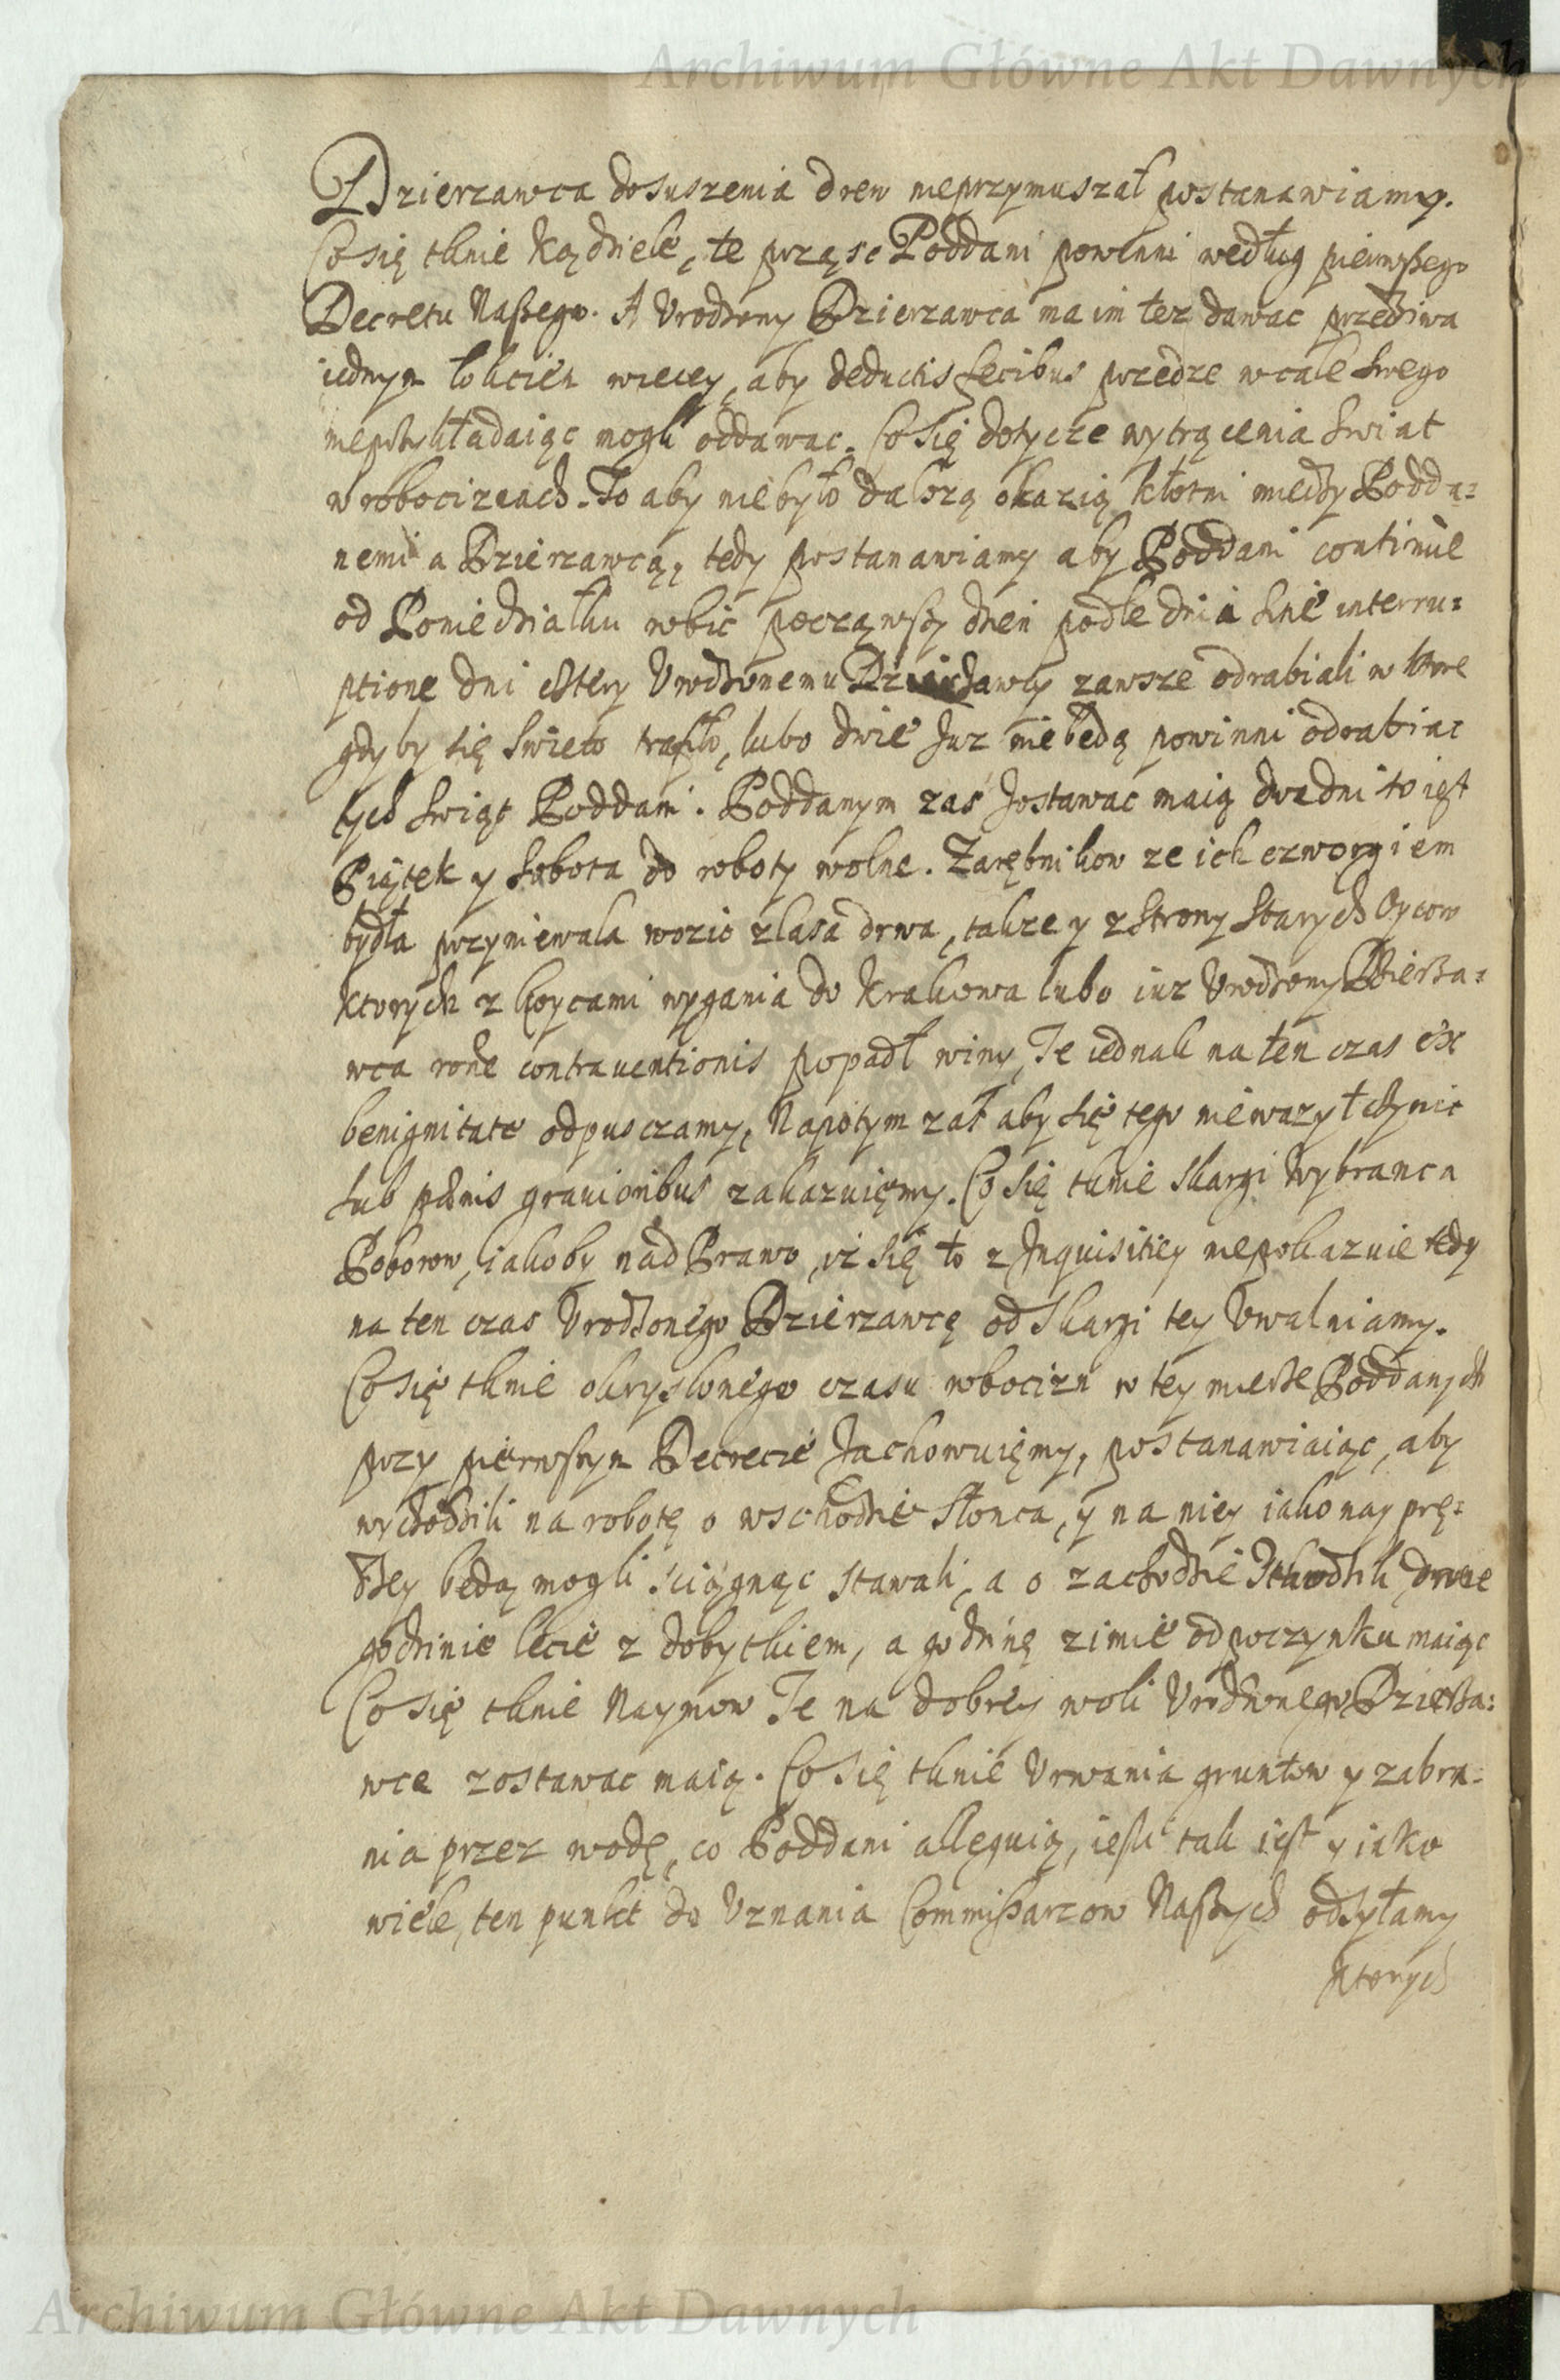 Archiwum Główne Akt Dawnych
Dzierzawca do suszenia drew nieprzymuszał postanawiamy.
Co się tknie Kądziele, te prząsc Poddani powinni według pierwszego
Decretu Naszego. A Vrodzony Dzierzawca ma im tez dawac przedziwa
iednym łokciem wiecey, aby deductis fecibus przedze wcale swego
nieprzykładaiąc mogli oddawac. Co się dotycze wytrącenia swiat
w robociznach. To aby niebyło dalszą okazią kłotni miedzy Podda=
nemi a Dzierzawcą, tedy postanawiamy aby Poddani continue
od Poniedziałku robic począwszy dzien podle dnia sine interru=
ptione dni cztery Vrodzonemu Dzierzawcy zawsze odrabiali w ktore
gdyby się swieto trafiło, lubo dwie Juz nie będą powinni odrabiac
tych swiąt Poddani. Poddanym zas Zostawac maią dwa dni to iest
Piątek y Sobota do roboty wolne. Zarębnikow ze ich czworgiem
bydła przyniewala wozic z lasa drwa, takze y z strony starych Oycow
ktorych z koycami wygania do Krakowa lubo iuz Vrodzony Dzierza=
wca rone contrauentionis popadł winy, Te iednak na ten czas ex
benignitate odpusczamy, Napotym zas aby się tego niewazył czynic
sub pænis grauioribus zakazuięmy. Co się tknie skargi Wybranca
Poborow, iakoby nad Prawo, iz się to z Inquisitiey niepokazuie tedy
na ten czas Vrodzonego Dzierzawcę od skargi tey Vwalniamy.
Co się tknie okryslonego czasu robocizn w tey mierze Poddanych
przy pierwszym Decrecie Zachowuięmy, postanawiaiąc, aby
wychodzili na robotę o wschodzie słonca, y na niey iako nay prę=
dzey będą mogli sciągnąc stawali, a o zachodzie Schodzili, dwie
godzinie lecie z dobytkiem, a godzinę zimie odpoczynku maiąc
Co się tknie Naymow Te na dobrey woli Vrodzonego Dzierza=
wce zostawac maią. Co się tknie Vrwania gruntow y zabra=
nia przez wodę, co Poddani alleguią, iesli tak iest y iako
wiele, ten punkt do Vznania Commissarzow Naszych odsyłamy
ktorych
Archiwum Główne Akt Dawnych